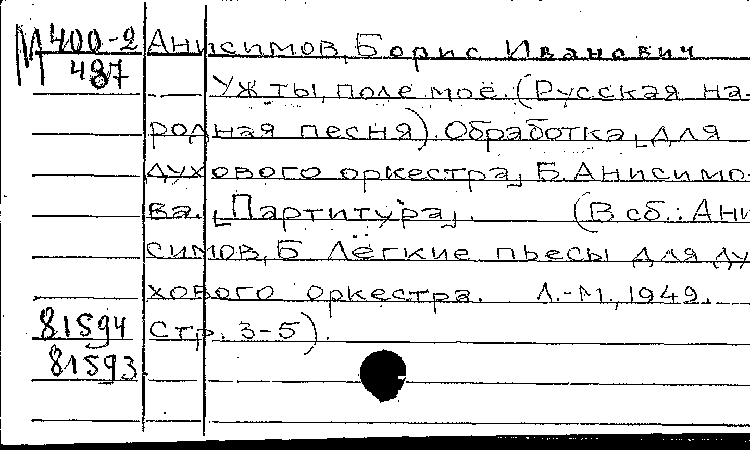 М 400-2 Анисимов, Борис Иванович
487
Уж ты, поле моё. (Русская на-
родная песня). Обработка [для
духового оркестра] Б. Анисимо-
ва. [Партитура]. (В сб.: Ани
симов, Б. Лёгкие пьесы для ду
хового оркестра. Л.-М., 1949.
81594 Стр. 3-5).
81593